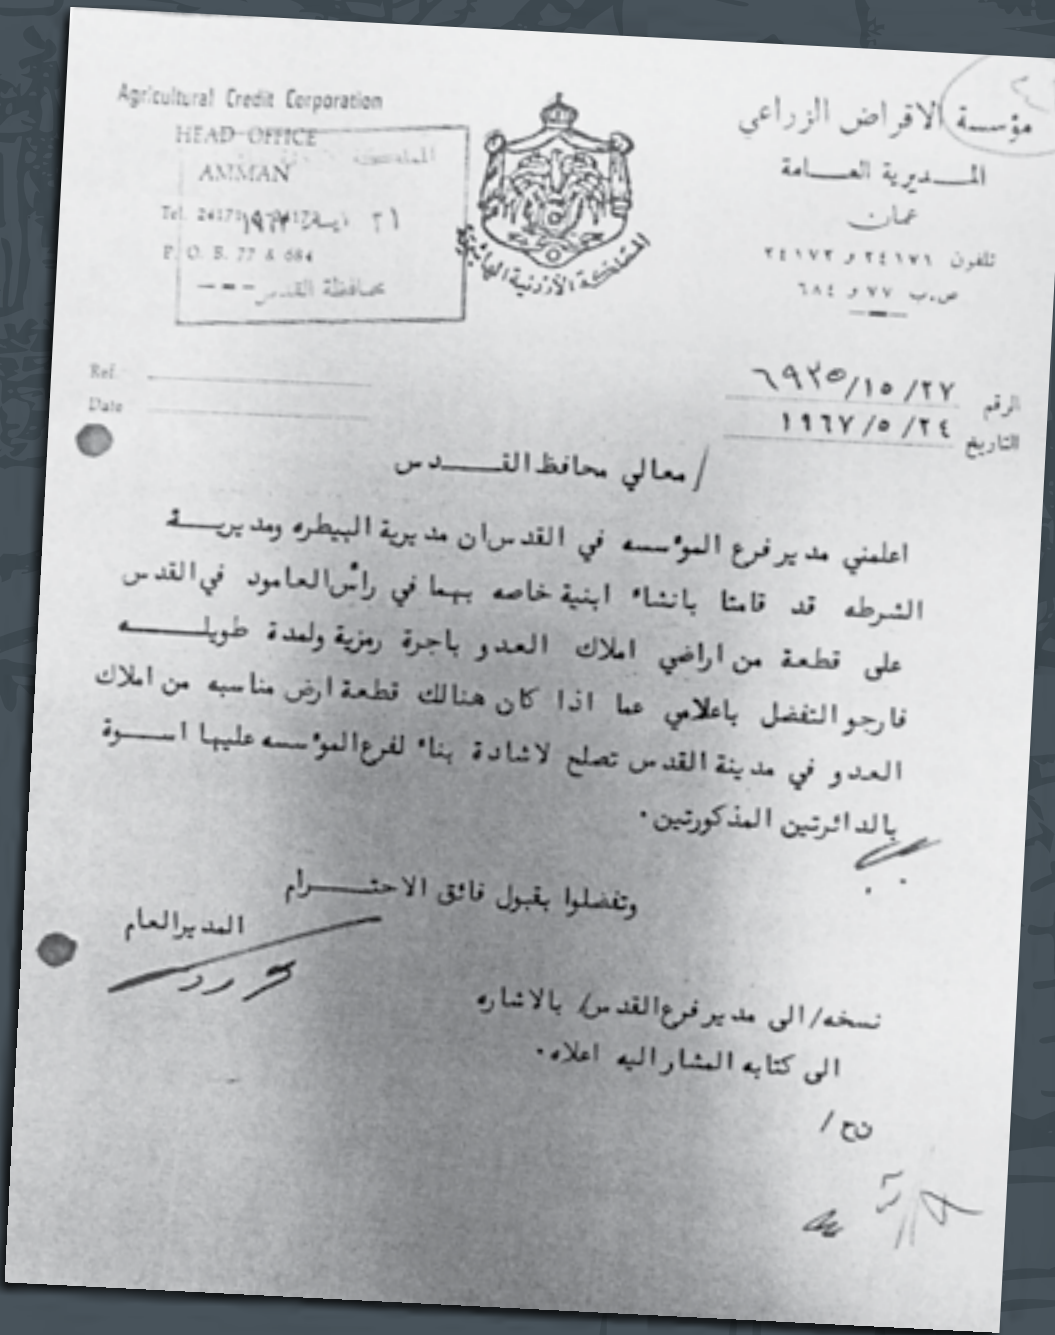 Agricultural Credit Corporation
HEAD OFFICE
AMMAN
P. O. B. 77 & 684
محافظة القدس
المملكة الأردنية الهاشمية
مؤسسة الاقراض الزراعي
المـــديرية العـــامة
عمان
تلفون ٢٤١٧١ و ٢٤١٧٢
ص.ب ٧٧ و ٦٨٤
Ref.
Date
الرقم ٢٧/ ١٥/ ٦٩٣٥
التاريخ ٢٤/ ٥/ ١٩٦٧
معالي محافظ القــــدس /
اعلمني مدير فرع المؤسسه في القدس ان مديرية البيطره ومديريــــة
الشرطه قد قامتا بانشاء ابنية خاصه بهما في رأس العامود في القدس
على قطعة من اراضي املاك العدو باجرة رمزية ولمدة طويلـــــه
فارجو التفضل باعلامي عما اذا كان هنالك قطعة ارض مناسبه من املاك
العدو في مدينة القدس تصلح لاشادة بناء لفرع المؤسسه عليها اســــوة
بالدائرتين المذكورتين.
وتفضلوا بقبول فائق الاحتـــــرام
المدير العام
نسخه/ الى مدير فرع القدس/ بالاشاره
الى كتابه المشار اليه اعلاه.